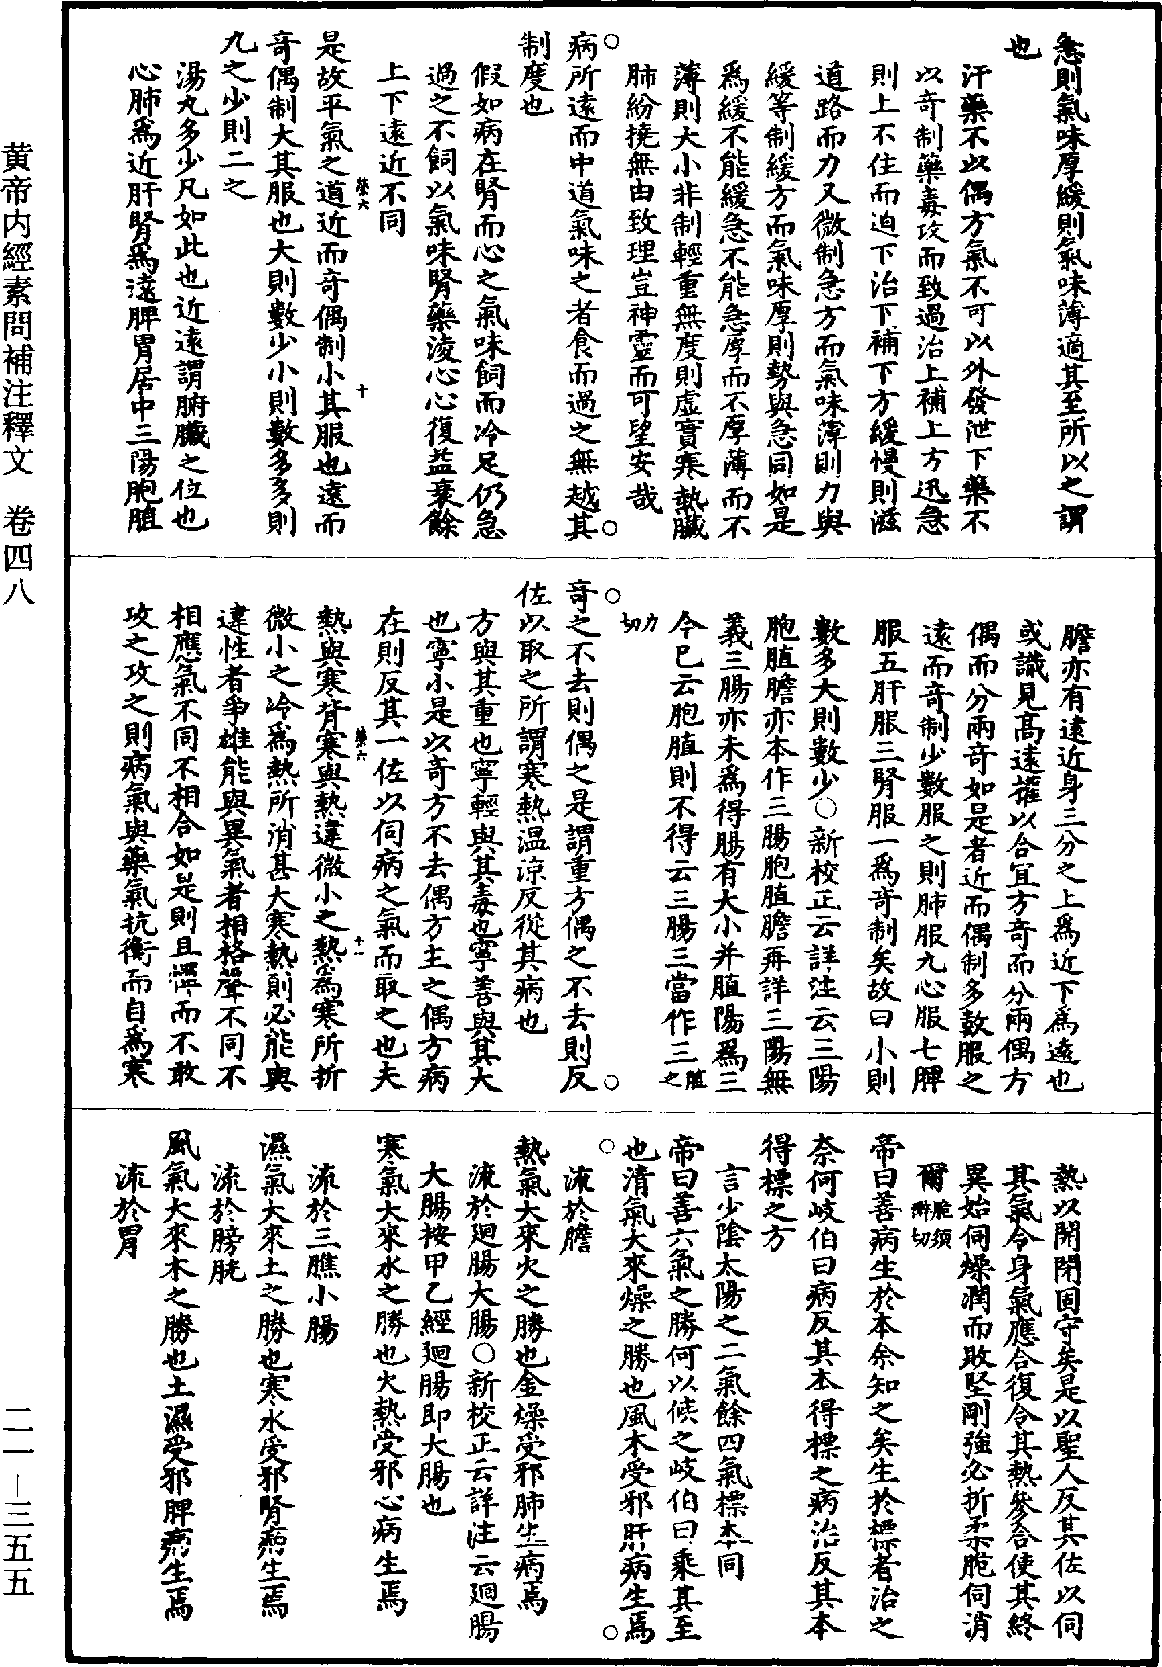 急則氣味厚緩則氣味薄適其至所以之謂
也
汗藥不以偶方氣不可以外發泄下藥不
以奇制藥毒攻而致過治上補上方迅急
則上不住而迫下治下補下方緩慢則滋
道路而力又微制急方而氣味薄則力與
緩等制緩方而氣味厚則勢與急同如是
爲緩不能緩急不能急厚而不厚薄而不
薄則大小非制輕重無度則虛實寒熱臟
腑紛撓無由致理豈神靈而可望安哉
○病所遠而中道氣味之者食而過之無越其○
制度也
假如病在腎而心之氣味飼而冷足仍急
過之不飼以氣味腎藥淩心心復益衰餘
上下遠近不同
是故平氣之道近而奇偶制小其服也遠而
藥六
十
奇偶制大其服也大則數少小則數多多則
九之少則二之
湯丸多少凡如此也近遠謂腑臟之位也
心肺爲近肝腎爲遠脾胃居中三陽胞䐈
膽亦有遠近身三分之上爲近下爲遠也
或識見高遠權以合宜方奇而分兩偶方
偶而分兩奇如是者近而偶制多數服之
遠而奇制少數服之則肺服九心服七脾
服五肝服三腎服一爲奇制矣故曰小則
數多大則數少○新校正云詳注云三陽
胞䐈膽亦本作三腸胞䐈膽再詳三陽無
義三腸亦未爲得腸有大小并䐈陽爲三
今已云胞䐈則不得云三腸三當作三䐈之
力切
○奇之不去則偶之是謂重方偶之不去則反○
佐以取之所謂寒熱温凉反從其病也
方與其重也寧輕與其毒也寧善與其大
也寧小是以奇方不去偶方主之偶方病
在則反其一佐以伺病之氣而取之也夫
熱與寒背寒與熱違微小之熱爲寒所折
藥六
十一
微小之冷爲熱所消甚大寒熱則必能與
違性者争雄能與異氣者相格聲不同不
相應氣不同不相合如是則且憚而不敢
攻之攻之則病氣與藥氣抗衡而自爲寒
熱以開閉固守矣是以聖人反其佐以伺
其氣令身氣應合復令其熱參合使其終
異始伺燥潤而敗堅剛強必折柔脆伺消
爾脆須醉切
帝曰善病生於本余知之矣生於標者治之
奈何岐伯曰病反其本得標之病治反其本
得標之方
言少陰太陽之二氣餘四氣標本同
帝曰善六氣之勝何以候之岐伯曰乘其至
○也清氣大來燥之勝也風木受邪肝病生焉○
流於膽
熱氣大來火之勝也金燥受邪肺生病焉
流於廻腸大腸○新校正云詳注云廻腸
大腸按甲乙經廻腸即大腸也
寒氣大來水之勝也火熱受邪心病生焉
流於三膲小腸
濕氣大來土之勝也寒水受邪腎病生焉
流於膀胱
風氣大來木之勝也土濕受邪脾病生焉
流於胃
黄帝内經素問補注釋文　卷四八
二一—三五五